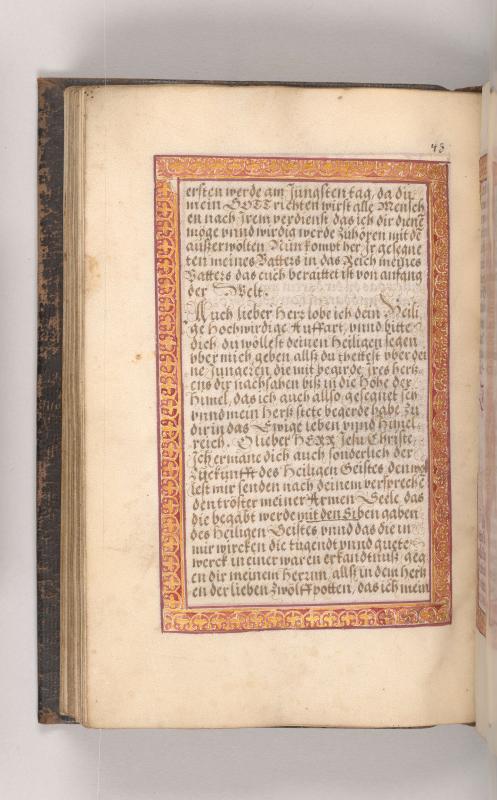 43
ersten werde am Jungsten tag, da du
mein GOTT richten wirst alle Mensch
en nach Jrem verdienst, das ich dir dienē
möge vnnd wirdig werde zuhören mit dē
außerwölten Nun kompt her Jr gesegne
ten meines Vatters in das Reich meines
Vatters das euch beraittet ist von anfang
der Welt.
Auch lieber Herr lobe ich dein Heili
ge Hochwirdige Auffart, vnnd bitte
dich, du wöllest deinen Heiligen segen
vber mich geben allß du thettest vber dei
ne Junger, die mit begirde jres hertz
ens dir nachsahen biß in die Höhe der
Himel, das ich auch allso gesegnet sey
vnnd mein Hertz stete begerde habe zu
dir in das Ewige leben vnnd Himel
reich. O lieber HERR Jesu Christe
Jch ermane dich auch sonderlich der
Zuekunfft des Heiligen Geistes den wöl
lest mir senden nach deinem versprechē
den tröster meiner Armen Seele das
die begabt werde mit den Siben gaben
des Heiligen Geistes vnnd das die in
mir wircken die tugendt vnnd guete
werck in einer waren erkandtnuß geg
en dir meinem Herrnn, allß in dem hertz
en der lieben Zwölffpotten, das ich mein